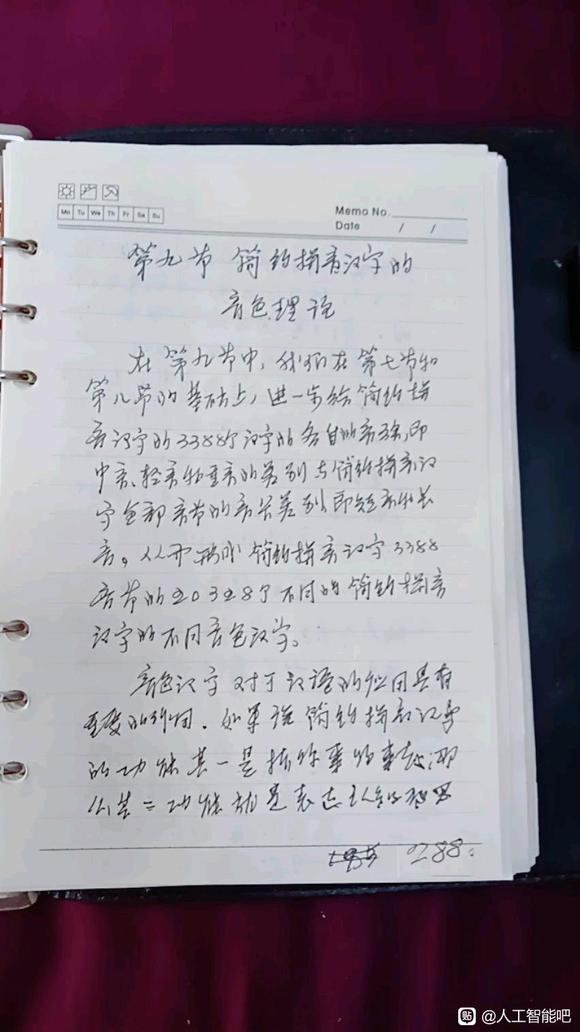 Mo Tu We Th Fr Sa Su
Memo No.
Date / /
第九节 简约拼音汉字的
音色理论
在第九节中，我们在第七节和
第八节的基础上，进一步给简约拼
音汉字的3388个汉字的各自的音强，即
中音、轻音和重音的类别与简约拼音汉
字全部音节的音长类别，即短音和长
音。从而形成简约拼音汉字3388
音节的20328个不同的简约拼音
汉字的不同音色汉字。
音色汉字对于汉语的应用具有
重要的作用。如果说简约拼音汉字
的功能其一是描述事物事态，那
么其二功能就是表达
288.
@人工智能吧